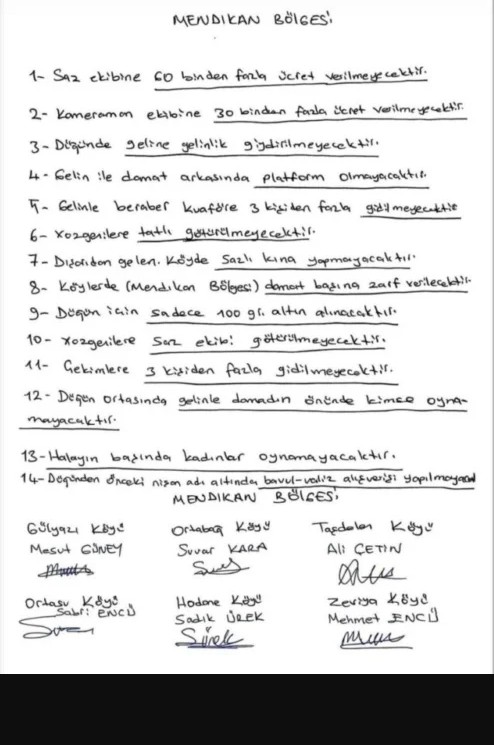 MENDİKAN BÖLGESİ
1- Saz ekibine 60 binden fazla ücret verilmeyecektir.
2- Kameraman ekibine 30 binden fazla ücret verilmeyecektir.
3- Düğünde geline gelinlik giydirilmeyecektir.
4- Gelin ile damat arkasında platform olmayacaktır.
5- Gelinle beraber kuaföre 3 kişiden fazla gidilmeyecektir
6- Xozgenilere tatlı götürülmeyecektir.
7- Dışarıdan gelen. Köyde Sazlı kına yapmayacaktır.
8- Köylerde (Mendikan Bölgesi) damat başına zarf verilecektir.
9- Düğün için sadece 100 gr. altın alınacaktır.
10- Xozgenilere Saz ekibi götürülmeyecektir.
11- Çekimlere 3 kişiden fazla gidilmeyecektir.
12- Düğün ortasında gelinle damadın önünde kimse oyna-
mayacaktır.
13- Halayın başında kadınlar oynamayacaktır.
14- Düğünden önceki nişan adı altında bavul-valiz alışverişi
MENDİKAN BÖLGESİ
Gülyazı Köyü Ortabağ Köyü Taşdelen Köyü
Mesut GÜNEY Suvar KARA Ali ÇETİN
Ortasu Köyü Hodane Köyü Zeviya Köyü
Sabri ENCÜ Sadık ÜREK Mehmet ENCÜ